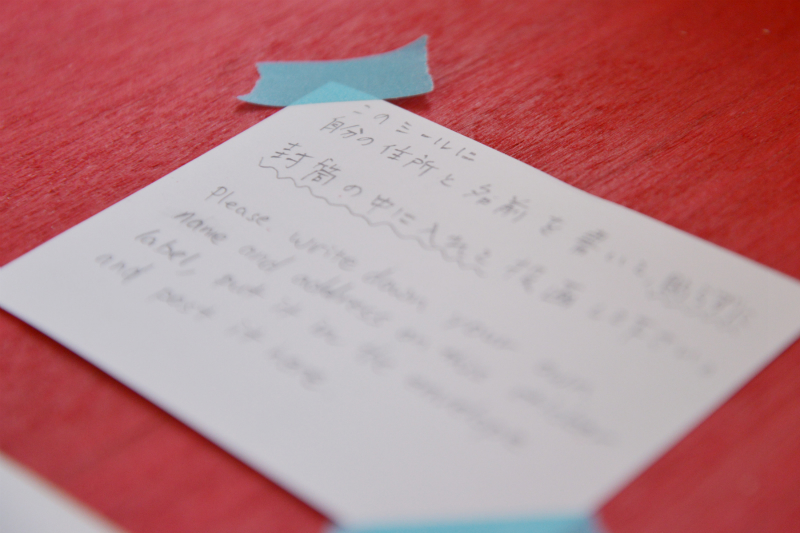 このシールに
自分の住所と名前を書いて、
封筒の中に入れて投函して下さい。
Please. write down your own
name and address on this sticker
label, put it in the envelope
and post it here